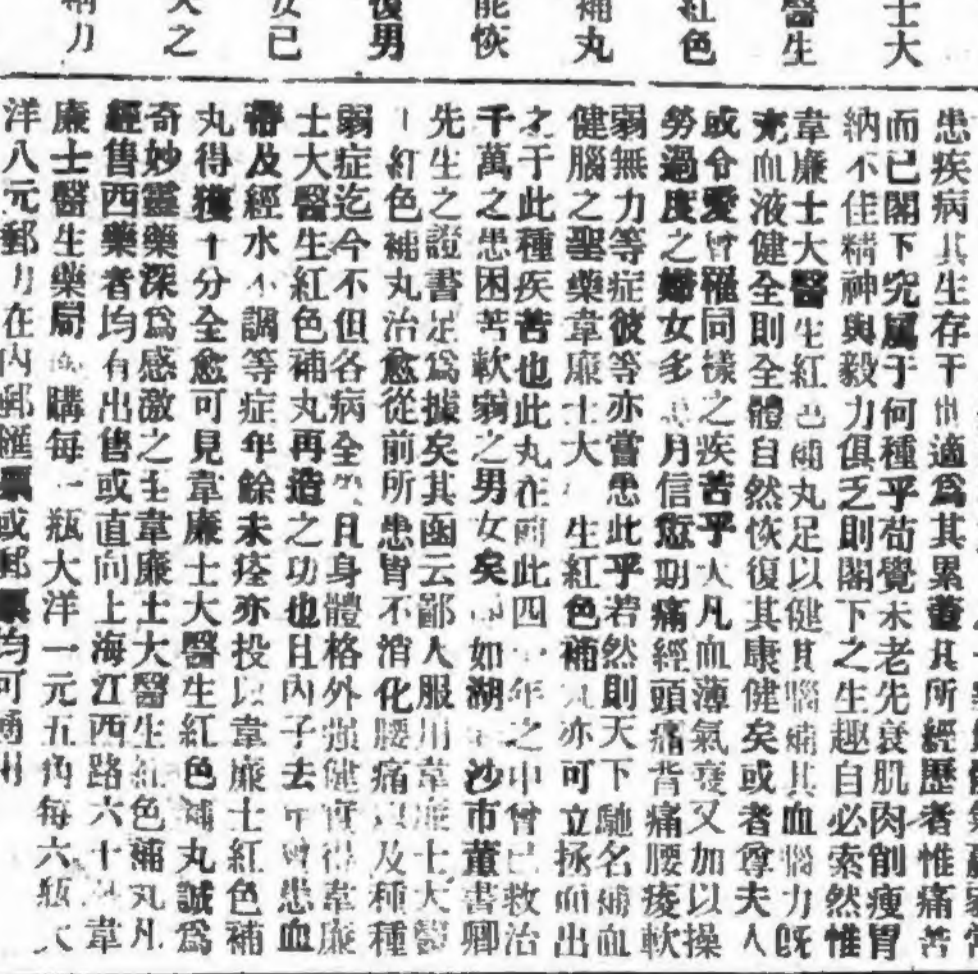 士大
醫生
紅色
補丸
能恢
復男
女己
失之
精力
患疾病其生存于世適爲其累蓋其所經歷者惟痛苦
而已閣下究屬于何種乎苟覺未老先衰肌肉削瘦胃
納不佳精神與毅力俱乏則閣下之生趣自必索然惟
韋廉士大醫生紅色補丸足以健其腦補其血腦力旣
充血液健全則全體自然恢復其康健矣或者尊夫人
或令愛曾罹同樣之疾苦乎夫人凡血薄氣衰又加以操
勞過度之婦女多患月信愆期痛經頭痛背痛腰痠軟
弱無力等症彼等亦嘗患此乎若然則天下馳名補血
健腦之聖藥韋廉士大醫生紅色補丸亦可立拯而出
之于此種疾苦也此丸在前此四十年之中曾已救治
千萬之患困苦軟弱之男女矣卽如湖 沙市董書卿
先生之證書足爲據矣其函云鄙人服用韋廉士大醫
生紅色補丸治愈從前所患胃不消化腰痛以及種種
弱症迄今不但各病全 且身體格外強健實得韋廉
士大醫生紅色補丸再造之功也且內子去年曾患血
帶及經水不調等症年餘未痊亦投以韋廉士紅色補
丸得獲十分全愈可見韋廉士大醫生紅色補丸誠爲
奇妙靈藥深爲感激之至韋廉士大醫生紅色補丸凡
經售西藥者均有出售或直向上海江西路六十 韋
廉士醫生藥局 購每一瓶大洋一元五角每六瓶大
洋八元郵力在內郵匯票或郵票均可通用